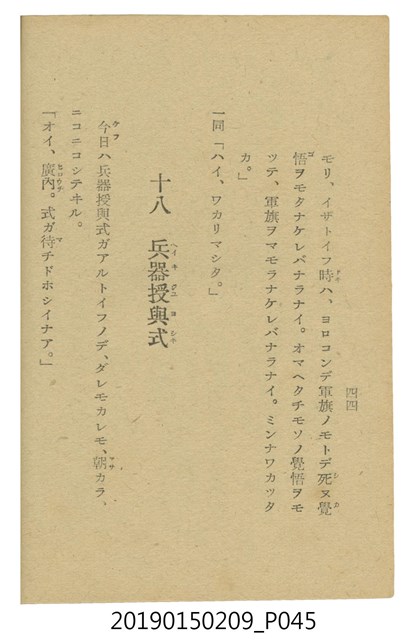 四四
モリ、イザトイフ時ハ、ヨロコンデ軍旗ノモトデ死ヌ覺
悟ヲモタナケレバナラナイ。オマヘタチモソノ覺悟ヲモ
ツテ、軍旗ヲマモラナケレバナラナイ。ミンナワカツタ
カ。」
一同「ハイ、ワカリマシタ。」
十八 兵器授與式
今日ハ兵器授與式ガアルトイフノデ、ダレモカレモ、朝カラ、
ニコニコシテヰル。
「オイ、廣內。式ガ待チドホシイナア。」
20190150209_P045